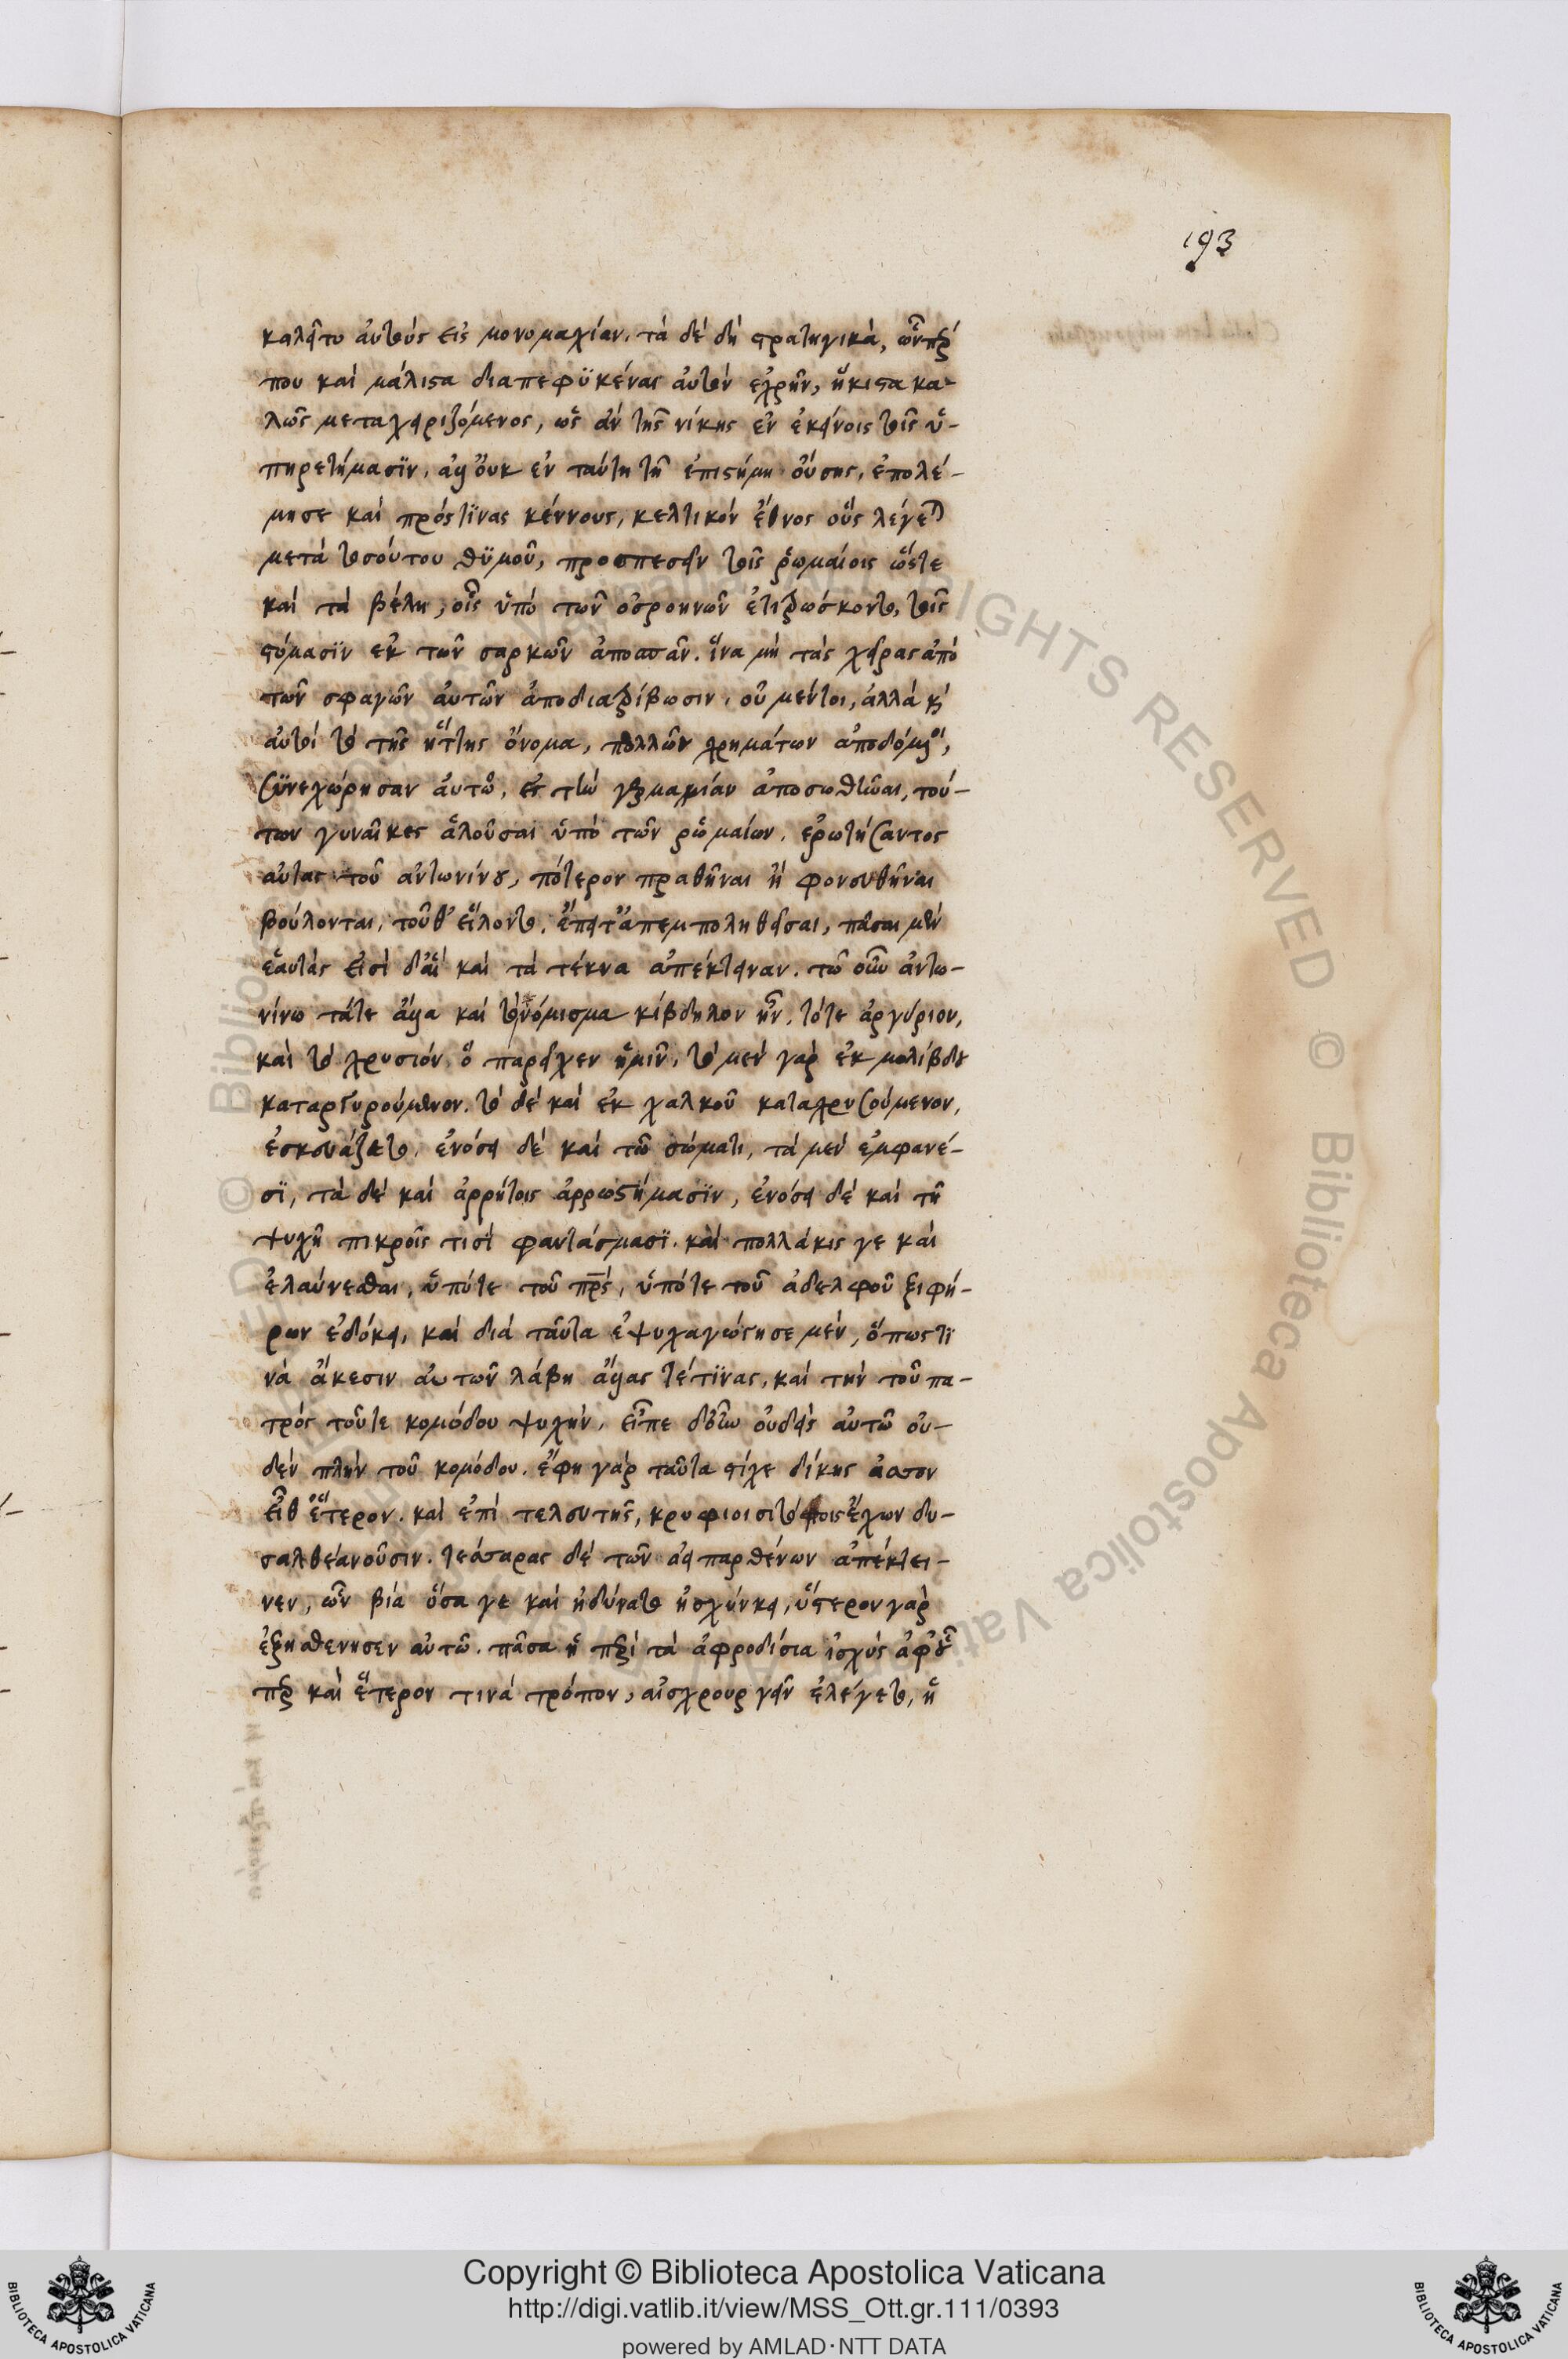 193
καλεῖτο ἀυτοὺς εἰς μονομαχίαν. τὰ δὲ δὴ στρατηγικὰ, ὧνπερ
που καὶ μάλιστα διαπεφϋκέναι ἀυτὸν ἐχρῆν, ἥκιστα κα-
λῶς μεταχειριζόμενος, ὡς ἂν τῆς νίκης ἐν ἐκείνοις τοῖς ὑ-
πηρετήμασϊν, ἀλλ' οὐκ ἐν ταύτη τῆ ἐπιστήμη οὔσης, ἐπολέ-
μησε καὶ πρός τϊνας κέννους, κελτικὸν ἔθνος οὓς λέγεται
μετὰ τοσούτου θϋμοῦ, προσπεσεῖν τοῖς ῥωμαίοις ὥστε
καὶ τὰ βέλη, οἷς ὑπὸ τῶν ὀσροηνῶν ἐτιτρώσκοντο, τοῖς
στόμασϊν ἐκ τῶν σαρκῶν ἀποσπᾶν. ἵνα μὴ τὰς χεῖρας ἀπὸ
τῶν σφαγῶν ἀυτῶν ἀποδιατρίβωσιν. οὐ μέντοι, ἀλλὰ καὶ
ἀυτοὶ τὸ τῆς ἥττης ὄνομα, πολλῶν χρημάτων ἀποδόμενοι,
σϋνεχώρησαν ἀυτῶ, ἐς τὴν γερμανίαν ἀποσωθῆναι, τού-
των γυναῖκες ἁλοῦσαι ὑπὸ τῶν ῥωμαίων. ἐρωτήσαντος
αὐτὰς τοῦ ἀντωνίνου, πότερον πραθῆναι ἢ φονευθῆναι
βούλονται, τοῦθ' εἵλοντο. ἔπειτ' ἀπεμποληθεῖσαι, πᾶσαι μὲν
ἑαυτὰς εἰσὶ δ' αἳ καὶ τὰ τέκνα ἀπέκτειναν. τῶ οὖν ἀντω-
νίνω τάτε ἄλλα καὶ τὸ νόμισμα κίβδηλον ἦν. τότε ἀργύριον,
καὶ τὸ χρυσίον, ὃ παρεῖχεν ἡμῖν. τὸ μὲν γὰρ ἐκ μολίβδου
καταργυρούμενον. τὸ δὲ καὶ ἐκ χαλκοῦ καταχρυσούμενον,
ἐσκευάζετο. ἐνόσει δὲ καὶ τῶ σώματι, τὰ μὲν ἐμφανέ-
σϊ, τὰ δὲ καὶ ἀρρήτοις ἀρρωστήμασϊν, ἐνόσει δὲ καὶ τῆ
ψυχῆ πικροῖς τισὶ φαντάσμασϊ. καὶ πολλάκις γε καὶ
ἐλαύνεσθαι, ὑπότε τοῦ πρς, ὑπότε τοῦ ἀδελφοῦ ξιφή-
ρων ἐδόκει, καὶ διὰ ταῦτα ἐψυχαγώγησε μὲν, ὅπως τϊ
νὰ ἄκεσιν αυτῶν λάβη ἄλλας τέ τϊνας, καὶ τὴν τοῦ πα-
τρὸς τοῦτε κομόδου ψυχὴν. εἶπε δ' οὖν οὐδεὶς αὐτῶ οὐ-
δὲν πλὴν τοῦ κομόδου. ἔφη γὰρ ταῦτα στίχε δίκης ἆσσον
εἶθ ἕτερον. καὶ ἐπὶ τελευτῆς, κρυφιοισι ἔχων δυ-
σαλθέανοῦσιν. τέσσαρας δὲ τῶν ἀειπαρθένων ἀπέκτει-
νεν, ὧν βία ὅσα γε καὶ ἠδύνατο ἠσχύνκει, ὕστερον γὰρ
ἐξησθενησεν αὐτῶ. πᾶσα ἡ περὶ τὰ ἀφροδίσια ἰσχύς ἀφ' οὗ
περ καὶ ἕτερον τινὰ τρόπον, αἰσχρουργεῖν ἐλέγετο, ἡ
© Biblioteca Apostolica Vaticana ALL RIGHTS RESERVED © Biblioteca Apostolica Vaticana
Copyright © Biblioteca Apostolica Vaticana
http://digi.vatlib.it/view/MSS_Ott.gr.111/0393
powered by AMLAD·NTT DATA
BIBLIOTECA APOSTOLICA VATICANA
BIBLIOTECA APOSTOLICA VATICANA